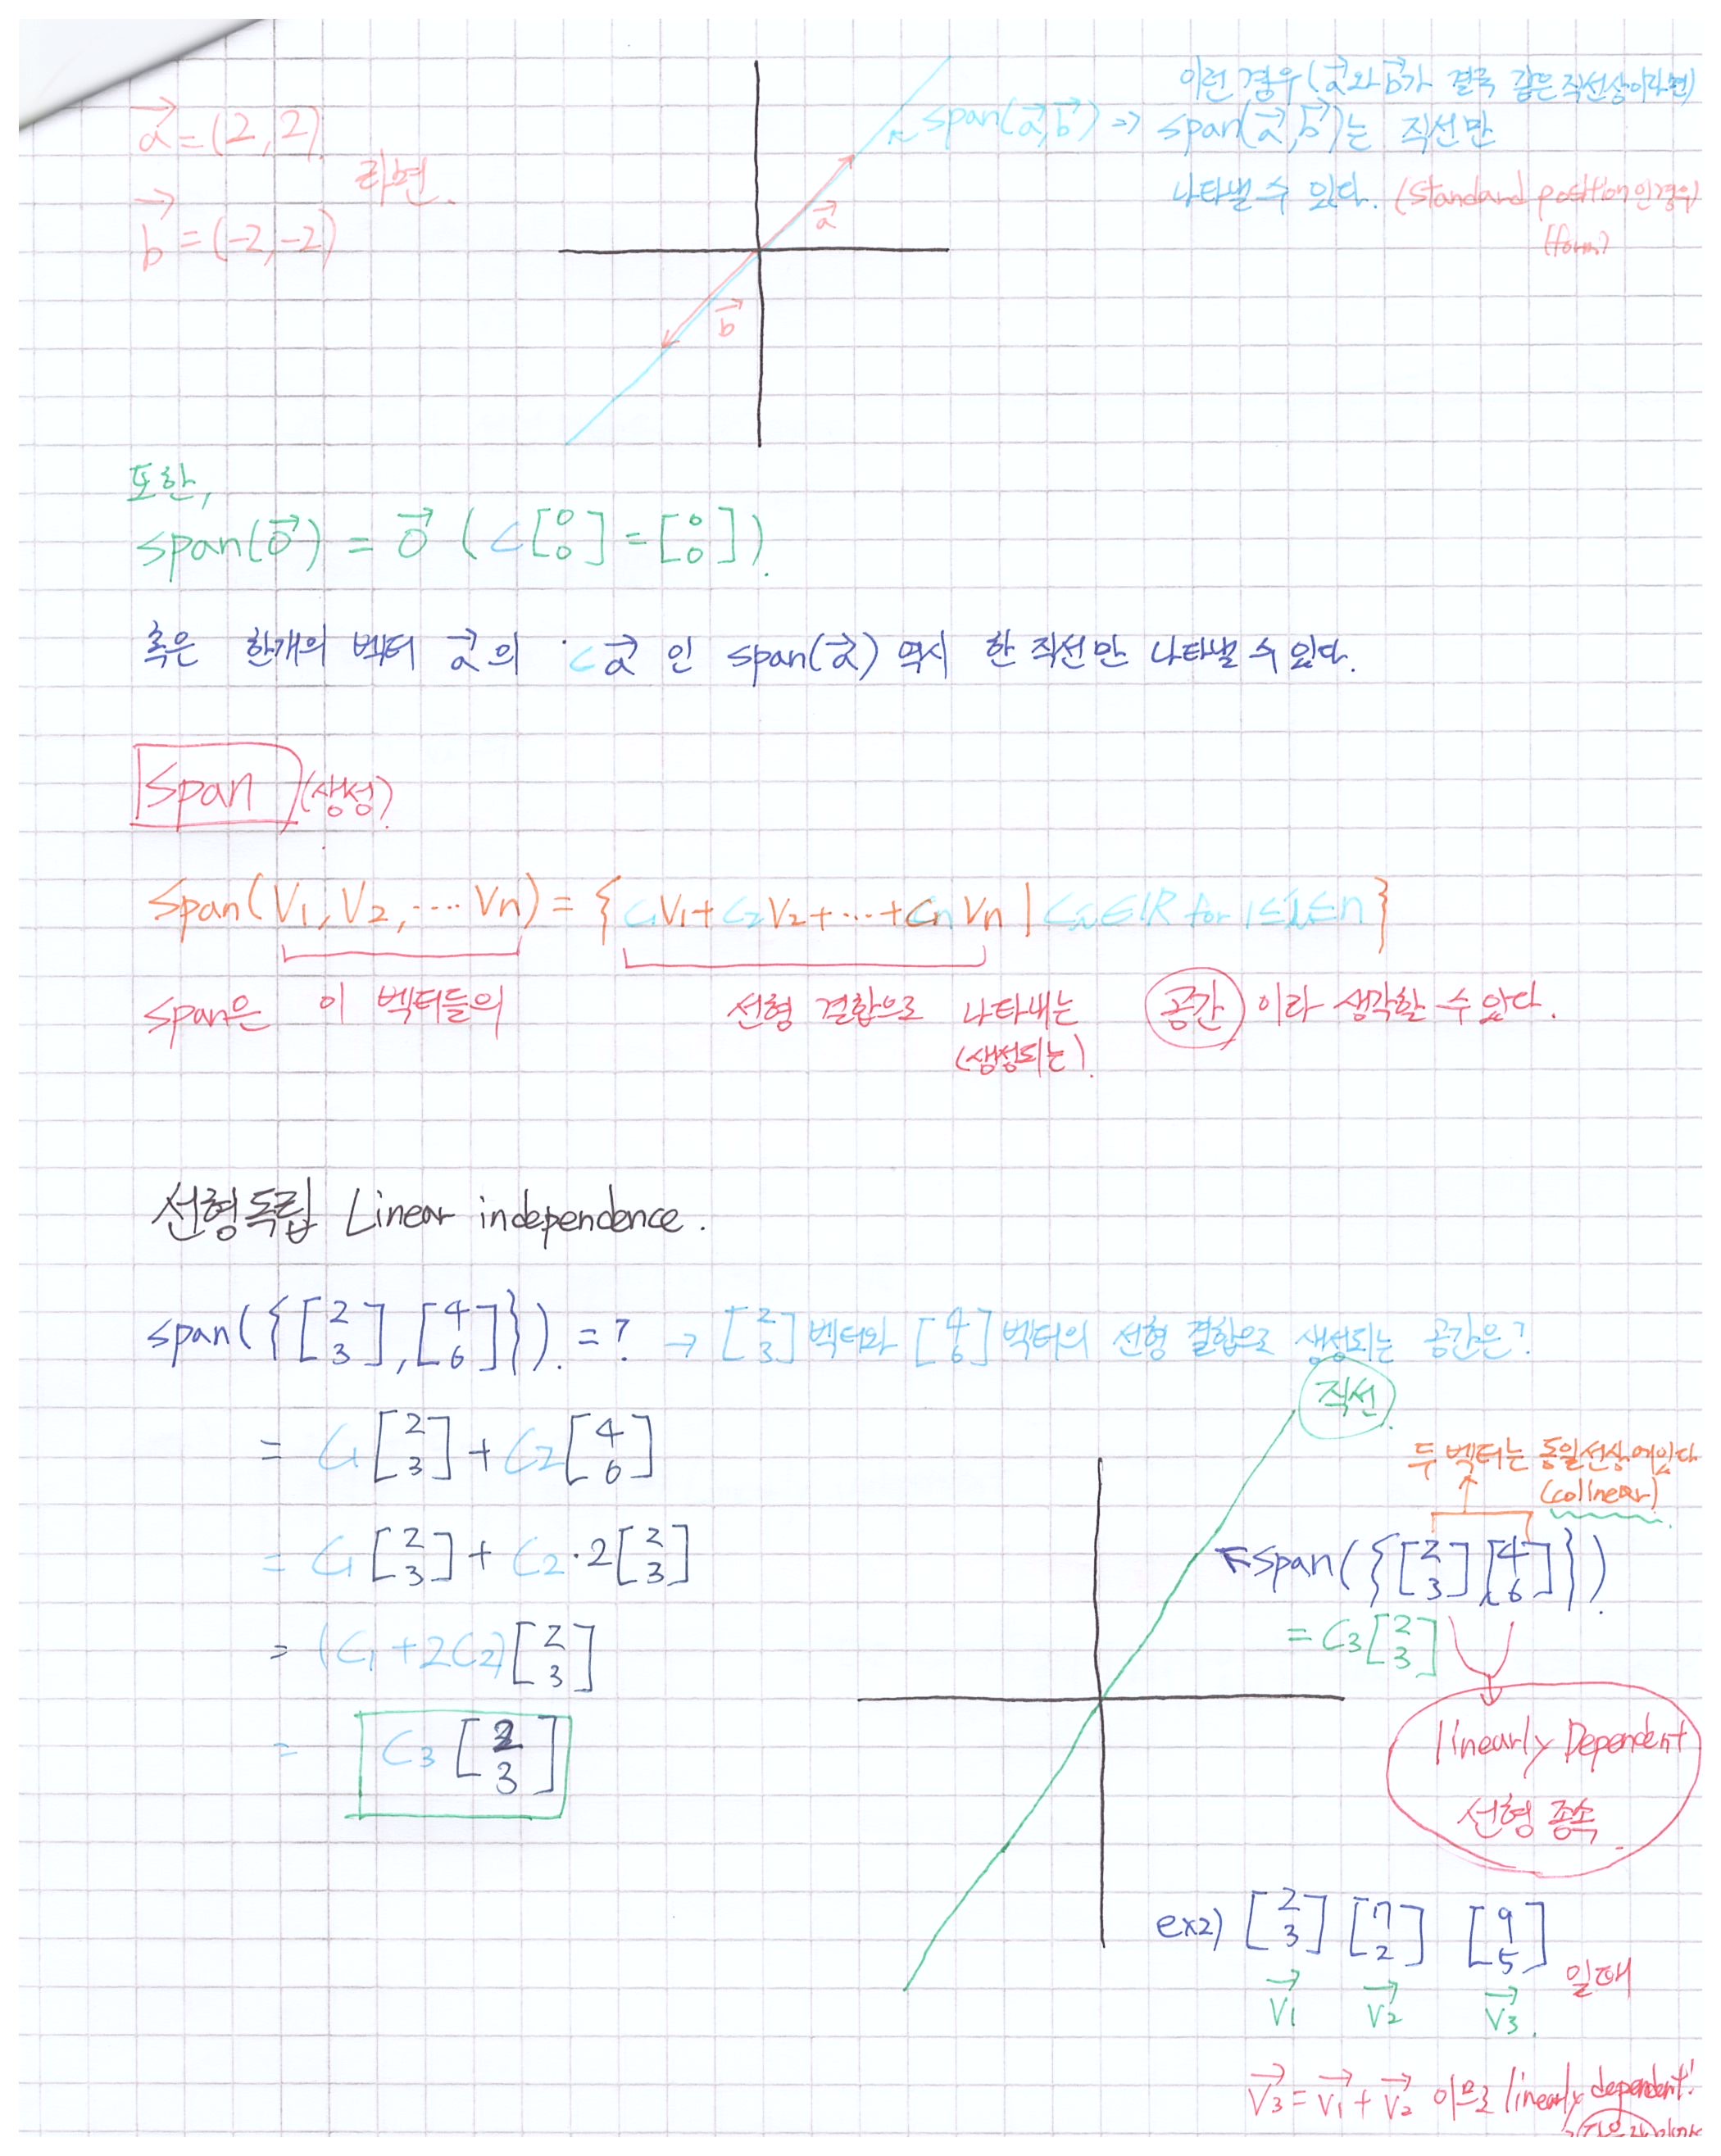 a = (2, 2)
b = (-2, -2)
라면.
a
b
span(a, b) ⇒
이런 경우 (a와 b가 결국 같은 직선상이라면)
span(a, b)는 직선만
나타낼 수 있다. (standard position인 경우)
(form?)
또한,
span(0) = 0 ( c[0 0] = [0 0] ).
혹은 한개의 벡터 a의 ca 인 span(a) 역시 한 직선만 나타낼 수 있다.
span (생성?)
span(V1, V2, .... Vn) = { C1V1 + C2V2 + ... + CnVn | Ci ∈ R for 1 ≤ i ≤ n }
span은 이 벡터들의 선형 결합으로 나타내는 공간 이라 생각할 수 있다.
(생성되는).
선형독립 Linear independence.
span({[2 3], [4 6]}). = ? → [2 3] 벡터와 [4 6] 벡터의 선형 결합으로 생성되는 공간은?
직선
= C1[2 3] + C2[4 6]
= C1[2 3] + C2·2[2 3]
= (C1 + 2C2)[2 3]
= C3[2 3]
두 벡터는 동일선상에있다
(colinear)
span({[2 3], [4 6]}).
= C3[2 3]
linearly Dependent
선형 종속
ex2) [2 3] [7 2] [9 5] 일때
V1 V2 V3.
V3 = V1 + V2 이므로 linearly dependent!